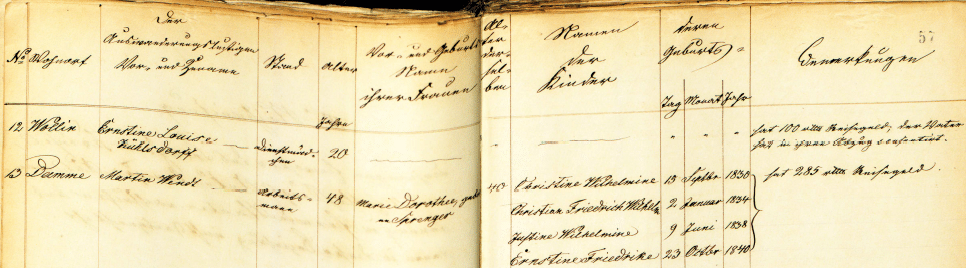 57
No Wohnort
Der
Auswanderungslustigen
Vor- und Zuname
Stand
Alter
Vor- und Geburts-
Name
ihrer Frauen
Al-
ter
der-
sel-
ben
Namen
der
Kinder
deren
Geburts-
Tag Monat Jahr
Bemerkungen
Jahre
12 Wollin Ernstine Louise
Dienstmäd-
chen 20
hat 100 rtlr Reisegeld, der Vater
13 Damme Martin Wendt
Arbeits-
mann 48 Marie Dorothee, geb
Sprenger
Christine Wilhelmine 13 Septbr 1830 hat 285 rtlr Reisegeld.
Christian Friedrich Wilhelm 2 Januar 1834
Justine Wilhelmine 9 Juni 1838
Ernstine Friedrike 23 Octbr 1840